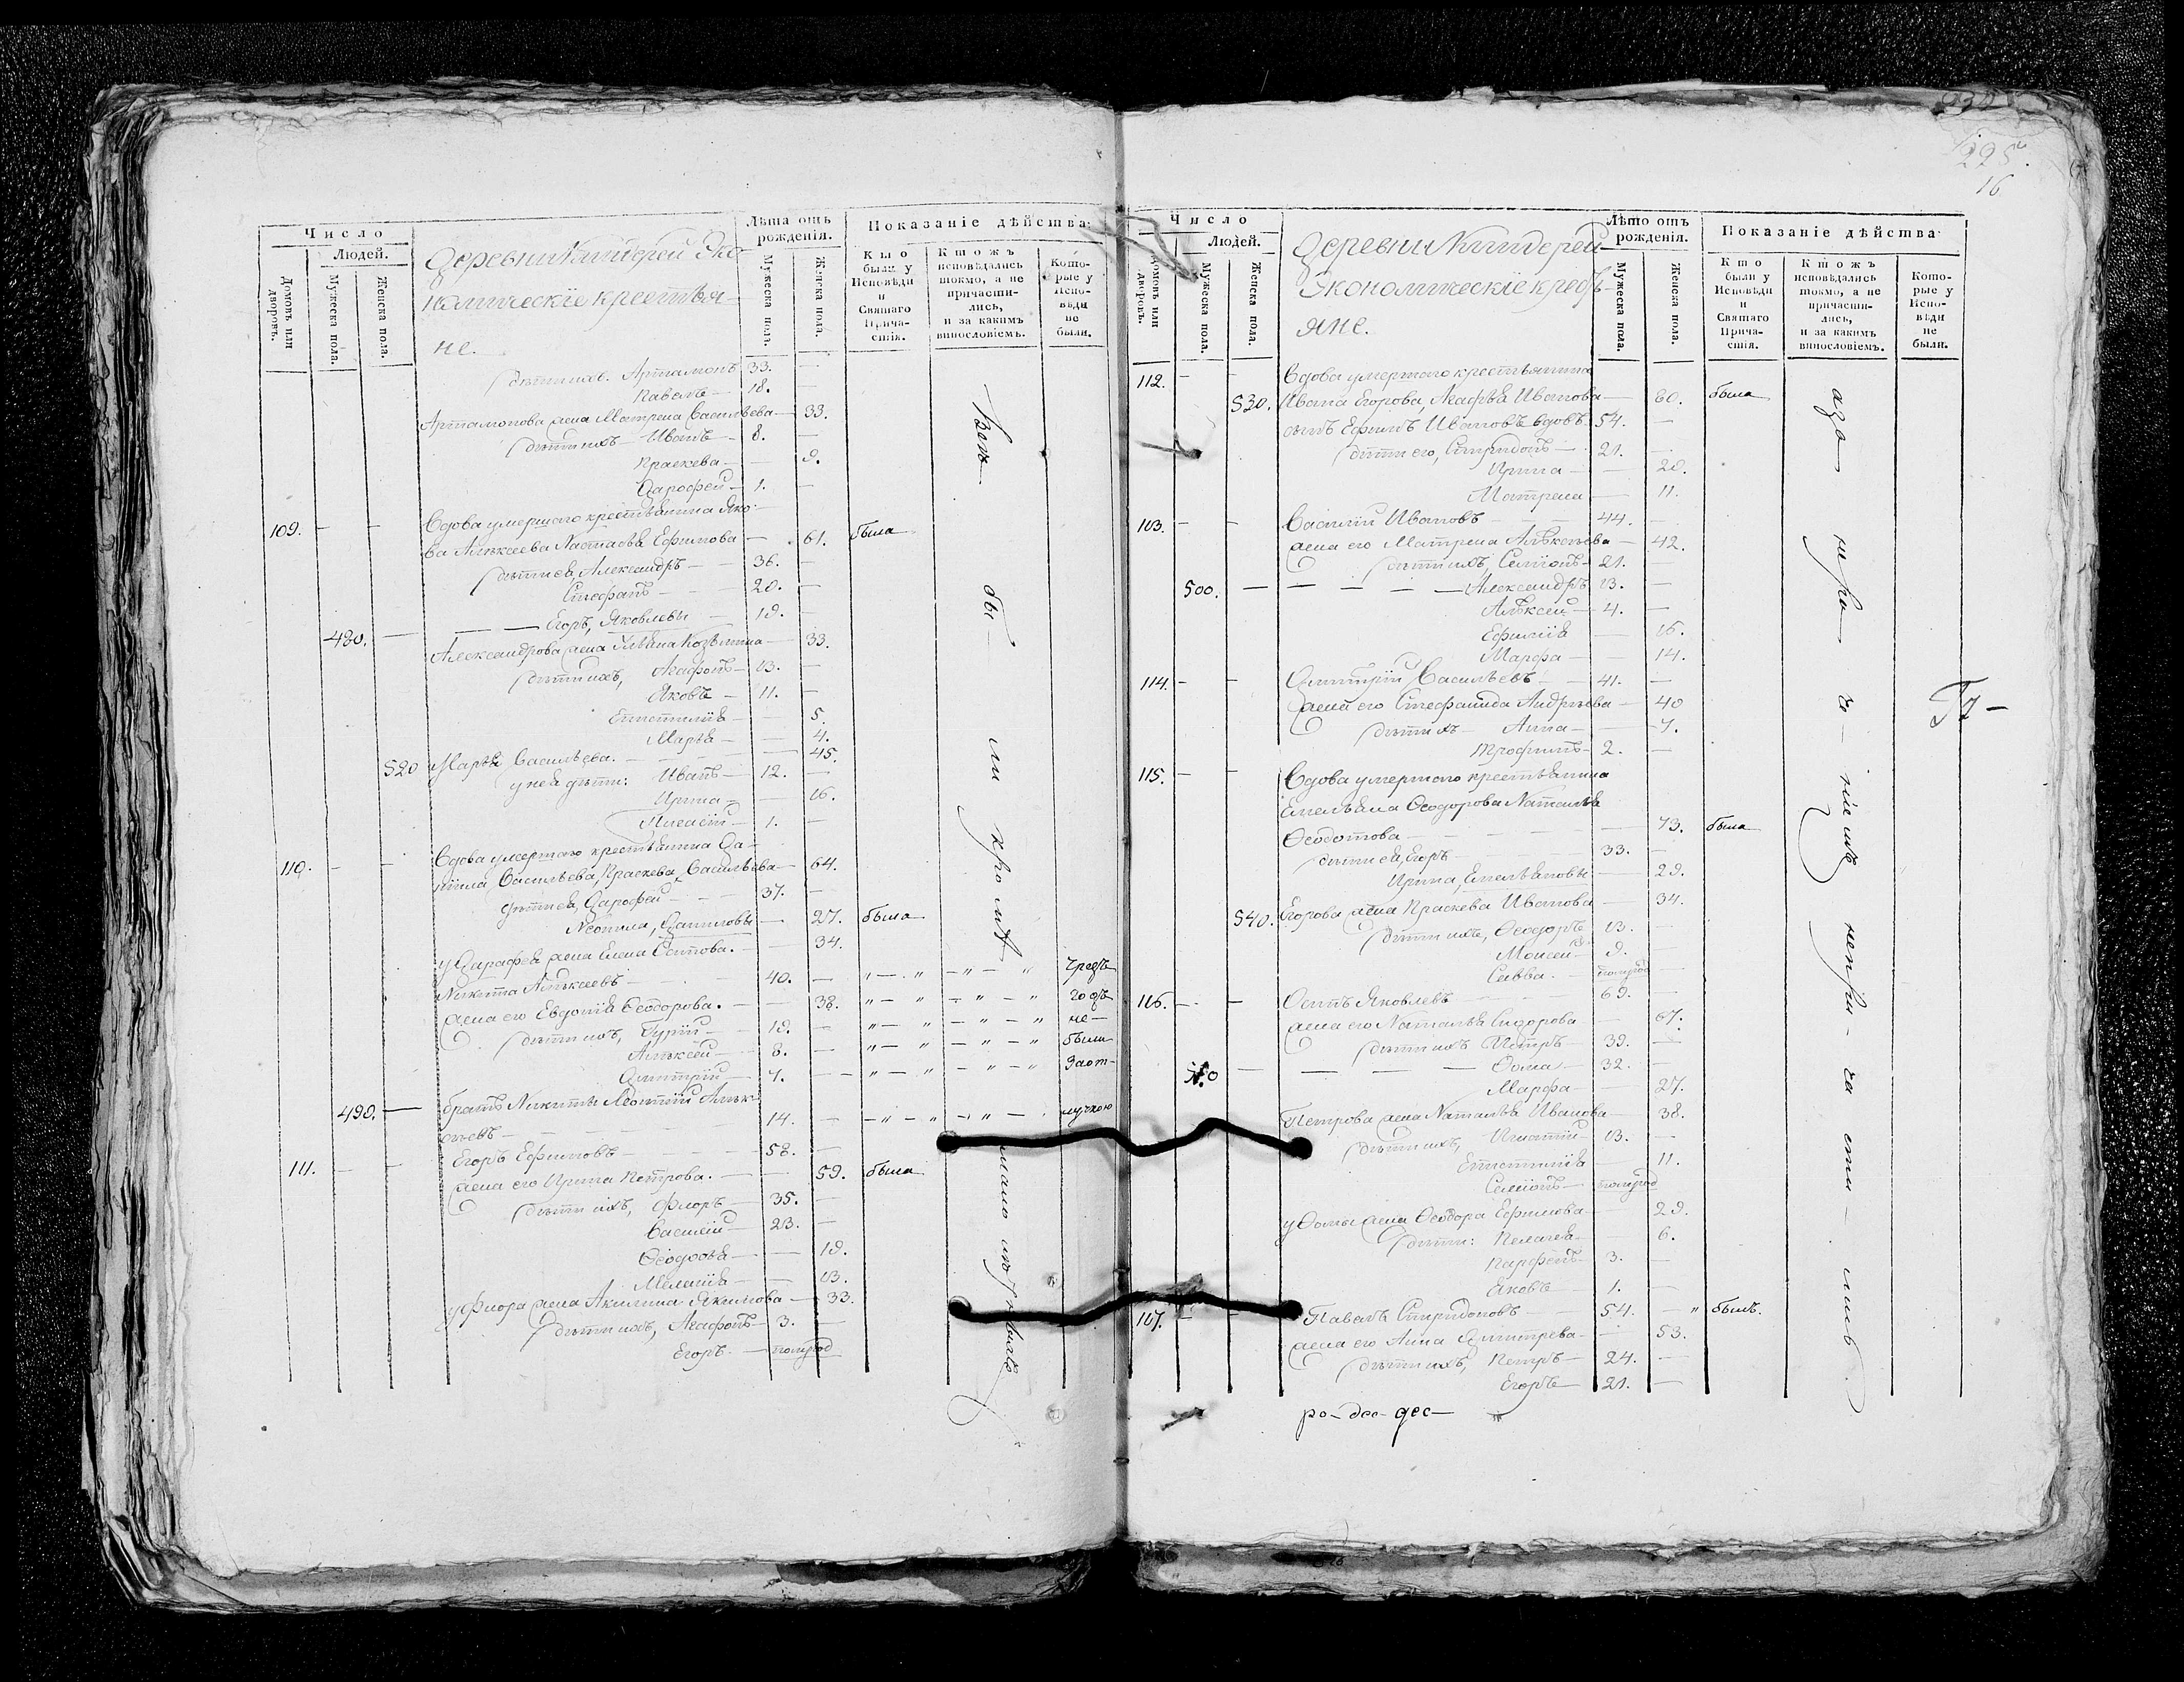 Число
Людей.
Домовъ или дворовъ.
Мужеска пола.
Женска пола.
Деревни Киндерей Эко-
номическіе крестья-
не.
Лѣта отъ рожденія.
Мужеска пола.
Женска пола.
Показаніе дѣйства.
Кто были у Исповѣди и Святаго Прича-стія.
Ктожъ исповѣдались токмо, а не причасти-лись, и за какимъ винословіемъ.
Кото-рые у Испо-вѣди не были.
дѣти ихъ. Артамонъ 33. —
Павелъ — 18.
Артамонова жена Матрена Васильева — 33.
дѣти ихъ Иванъ — 8. —
Праскева — — 9.
Дарофей — 1. —
109. — — Вдова умершаго крестьянина Яко-
ва Алѣксеева Настасья Ефимова — 61. была
дѣти ея, Александръ — 36. —
Стефанъ — 20. —
Егоръ, Яковлевы — 19. —
480. — Александрова жена Ульяна Козьмина — 33.
дѣти ихъ, Агафонъ — 13. —
Яковъ — 11. —
Епистилія — — 5.
Марья — — 4.
520 Марья Васильева. — — 45.
у нея дѣти: Иванъ — 12. —
Ирина — — 16.
1. —
110. — — Вдова умершаго крестьянина Да-
нила Васильева, Праскева, Васильева — 64.
дѣти ея, Дарофей — 37. —
Неонила, Даниловы — 27. была
у Дарафея жена Елена Осипова. — 34.
Никита Алѣксеевъ — 40. — чрезъ
жена его Евдокія Ѳеодорова. — — 38. годъ
дѣти ихъ, Гурій — 19. — не —
Алѣксей — 8. — были
Дмитрій — 7. — За от-
490. — братъ Никиты Леонтій Алѣк-
сѣевъ — 14. — лучкою
111. — — Егоръ Ефимовъ — 58. —
жена его Ирина Петрова. — — 59. была
дѣти ихъ, Флоръ — 35. —
Василій — 23. —
Ѳеодосья — — 19.
Меланія — — 13.
у Флора жена Акилина Якимова — 33.
дѣти ихъ, Агафонъ — 3. —
Егоръ. — полугод
Всѣ
бы
ли
кромѣ
225.
16
Число
Людей.
Домовъ или дворовъ.
Мужеска пола.
Женска пола.
Деревни Киндерей
Экономическіе кресть-
яне.
Лѣто отъ рожденія.
Мужеска пола.
Женска пола.
Показаніе дѣйства
Кто были у Исповѣди и Святаго Прича-стія.
Ктожъ исповѣдались токмо, а не причасти-лись, и за какимъ винословіемъ.
Кото-рые у Испо-вѣди не были.
112. — — Вдова умершаго крестьянина
530. Ивана Егорова, Агафья Иванова — 80. была
сынъ Ефимъ Ивановъ вдовъ. 54. —
дѣти его, Спиридонъ — 21. —
Ирина — — 20.
Матрена — — 11.
113. — — Василій Ивановъ — 44. —
жена его Матрена Алѣксѣева — 42.
дѣти ихъ, Семіонъ — 21. —
500. — Александръ 13. —
Алѣксей — 4. —
Ефимія — 16.
Марфа — — 14.
114. — — Дмитрій Васильевъ — 41. —
жена его Стефанида Андрѣева — 40
дѣти ихъ — Анна — — 7.
Трофимъ — 2. —
115. — — Вдова умершаго крестьянина
Емельяна Ѳеодорова Наталья
Ѳеодотова — 73. была
дѣти ея, Егоръ — 33. —
Ирина, Емельяновы — 29.
540. Егорова жена Праскева Иванова — 34.
дѣти ихъ, Ѳеодоръ 13. —
Моисей — 9. —
Савва. — полугод —
116. — — Осипъ Яковлевъ — 69. —
жена его Наталья Сидорова — 67.
дѣти ихъ Петръ — 39. —
510 — Ѳома — 32. —
Марфа — — 27.
Петрова жена Наталья Иванова — 38.
дѣти ихъ, Игнатій — 13. —
Епистилія — 11.
Семіонъ — полугод
у Ѳомы жена Ѳеодора Ефимова — 29.
дѣти: Пелагея — 6.
Парфенъ — 3. —
Яковъ — 1. —
117. — — Павелъ Спиридоновъ — 54. — былъ.
жена его Анна Дмитрева — — 53.
дѣти ихъ, Петръ — 24. —
Егоръ — 21. —